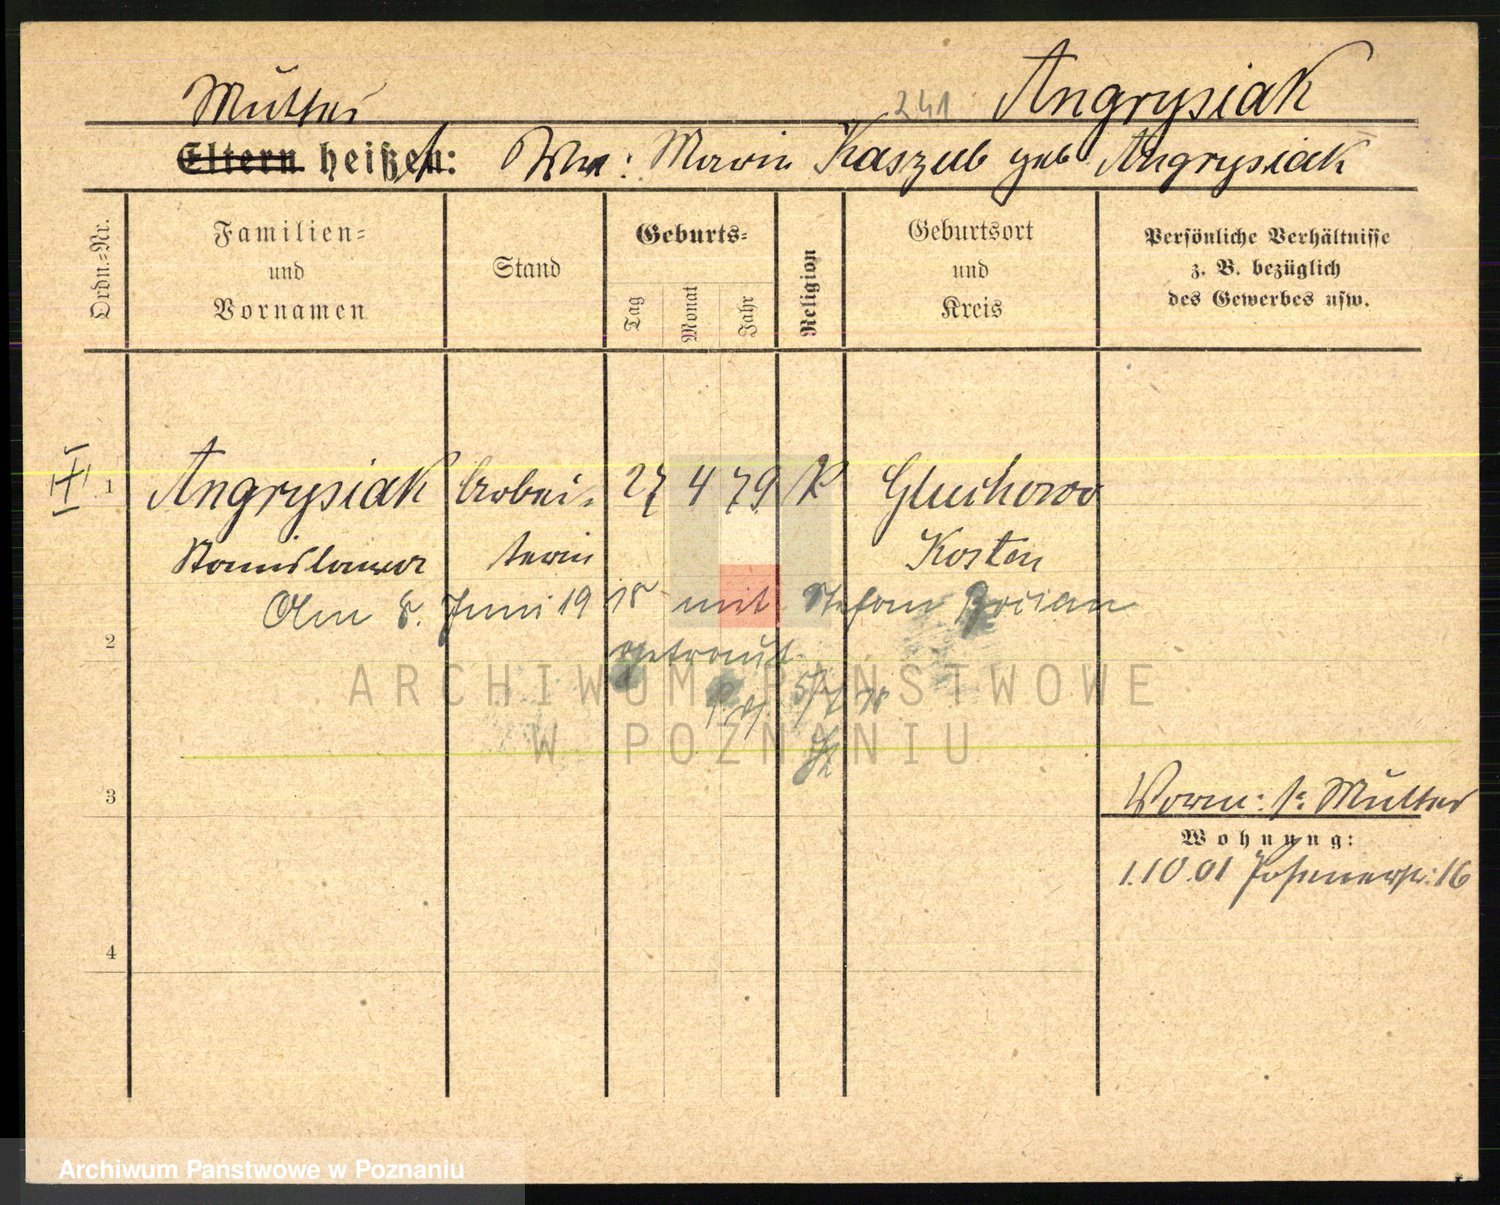 241 Angrysiak
Mutter
Eltern heißen: Ww: Marie Kaszub geb Angrysiak
Ordn.-Nr.
Familien-
und
Vornamen
Stand
Geburts-
Tag
Monat
Jahr
Religion
Geburtsort
und
Kreis
Persönliche Verhältnisse
z. B. bezüglich
des Gewerbes usw.
1 Angrysiak Arbei- 27 4 79 K Gluchowo
Stanislawa terin Kosten
Am 8. Juni 1918 mit Stefan Bocian
2
getraut
3
Vorm: s: Mutter
Wohnung:
1.10.01 Posenerstr: 16
4
ARCHIWUM PAŃSTWOWE
W POZNANIU
Archiwum Państwowe w Poznaniu